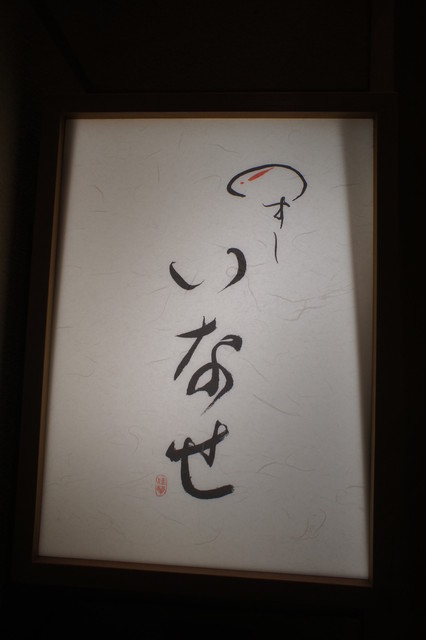 すし
いなせ